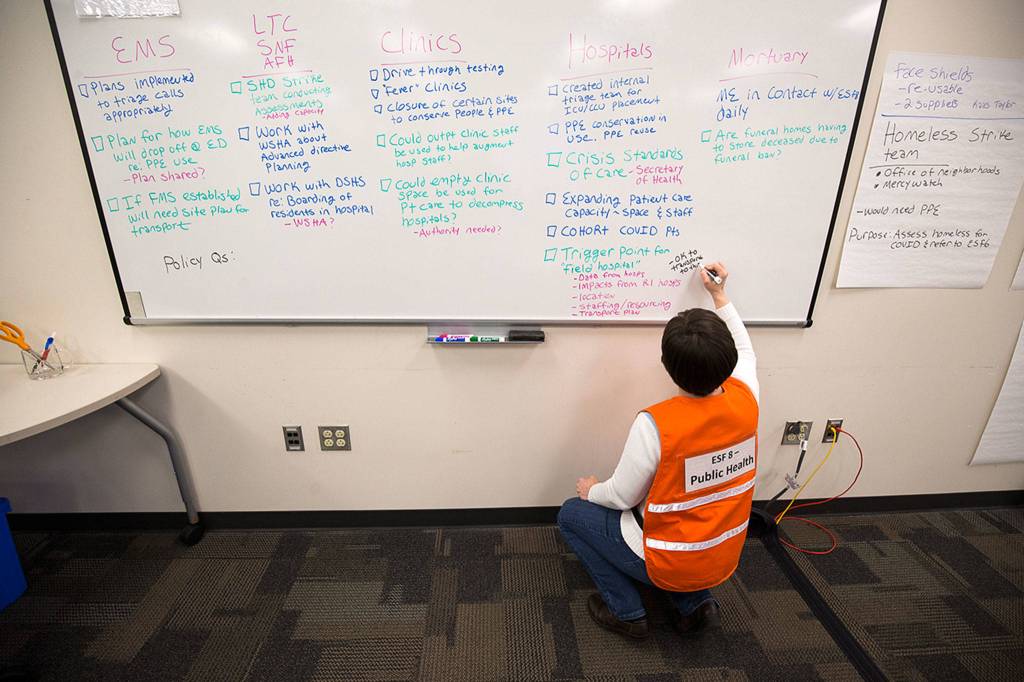 EMS
Plans implemented
to triage calls
appropriately
Plan for how EMS
will drop off @ ED
re: PPE use
- Plan shared?
If FMS established
will need site plan for
transport
Policy Qs:
LTC
SNF
AFH
SHD Strike
team conducting
Assessments
- Adding capacity
Work with
WSHA about
Advanced directive
Planning
Work with DSHS
re: Boarding of
residents in hospital
- WSHA?
Clinics
Drive through testing
"Fever" Clinics
Closure of certain sites
to conserve People & PPE
Could outpt clinic staff
be used to help augment
hosp staff?
Could empty clinic
space be used for
Pt care to decompress
hospitals?
- Authority needed?
Hospitals
created internal
triage team for
ICU/CCU placement
PPE conservation in
use.. PPE reuse
Crisis Standards
of Care - Secretary
of Health
Expanding patient care
capacity - space & staff
COHORT COVID Pts
Trigger Point for
"field hospital"
- Data from hosps
- Impacts from R1 hosps
- location
- Staffing/resourcing
- Transport Plan
- OK to
transport
to
Mortuary
ME in contact w/ESF8
daily
Are funeral homes having
to store deceased due to
funeral ban?
Face shields
- re-usable
- 2 suppliers
Homeless Strike
team
• Office of neighborhoods
• Mercy watch
- would need PPE
Purpose: Assess homeless for
COVID & refer to ESF6
ESF 8 –
Public Health